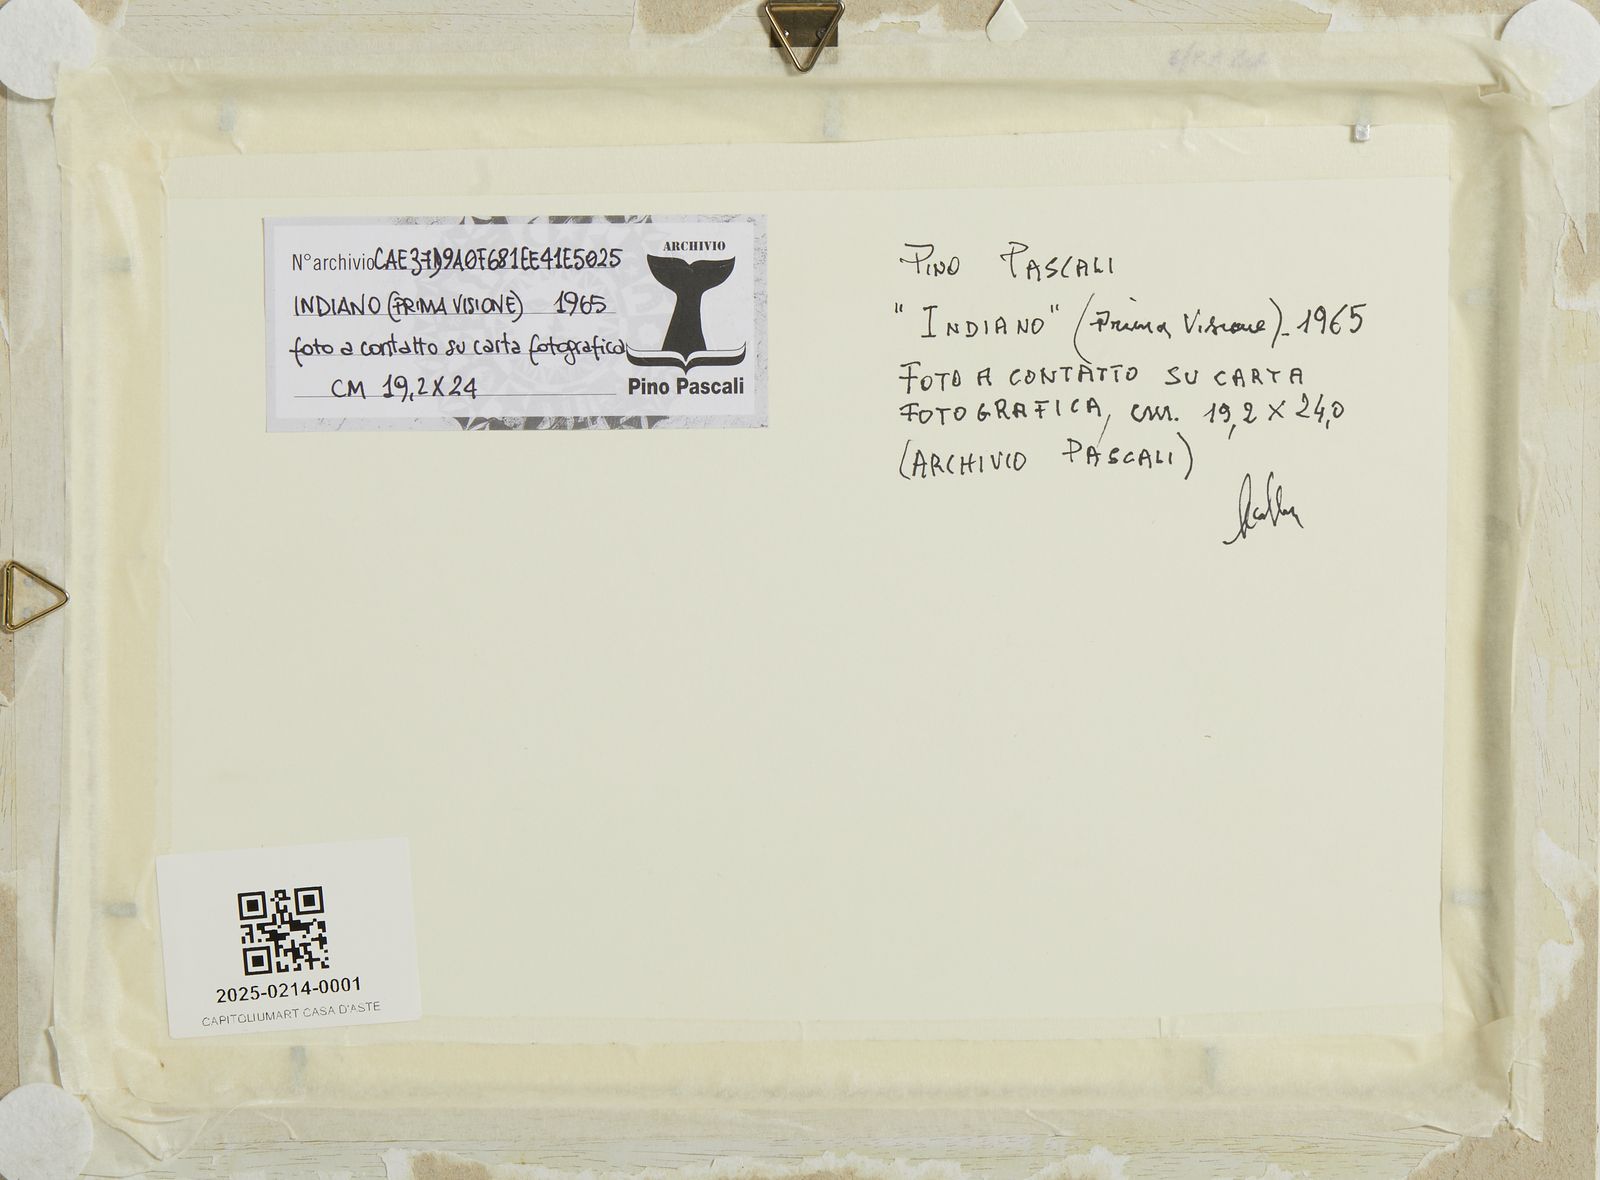 N°archivio CAE37D9A0F681EE41E5025
INDIANO (PRIMA VISIONE) 1965
foto a contatto su carta fotografica
CM 19,2X24
ARCHIVIO
Pino Pascali
PINO PASCALI
"INDIANO" (Prima Visione)_1965
FOTO A CONTATTO SU CARTA
FOTOGRAFICA, cm. 19,2 X 24,0
(ARCHIVIO PASCALI)
2025-0214-0001
CAPITOLIUMART CASA D'ASTE